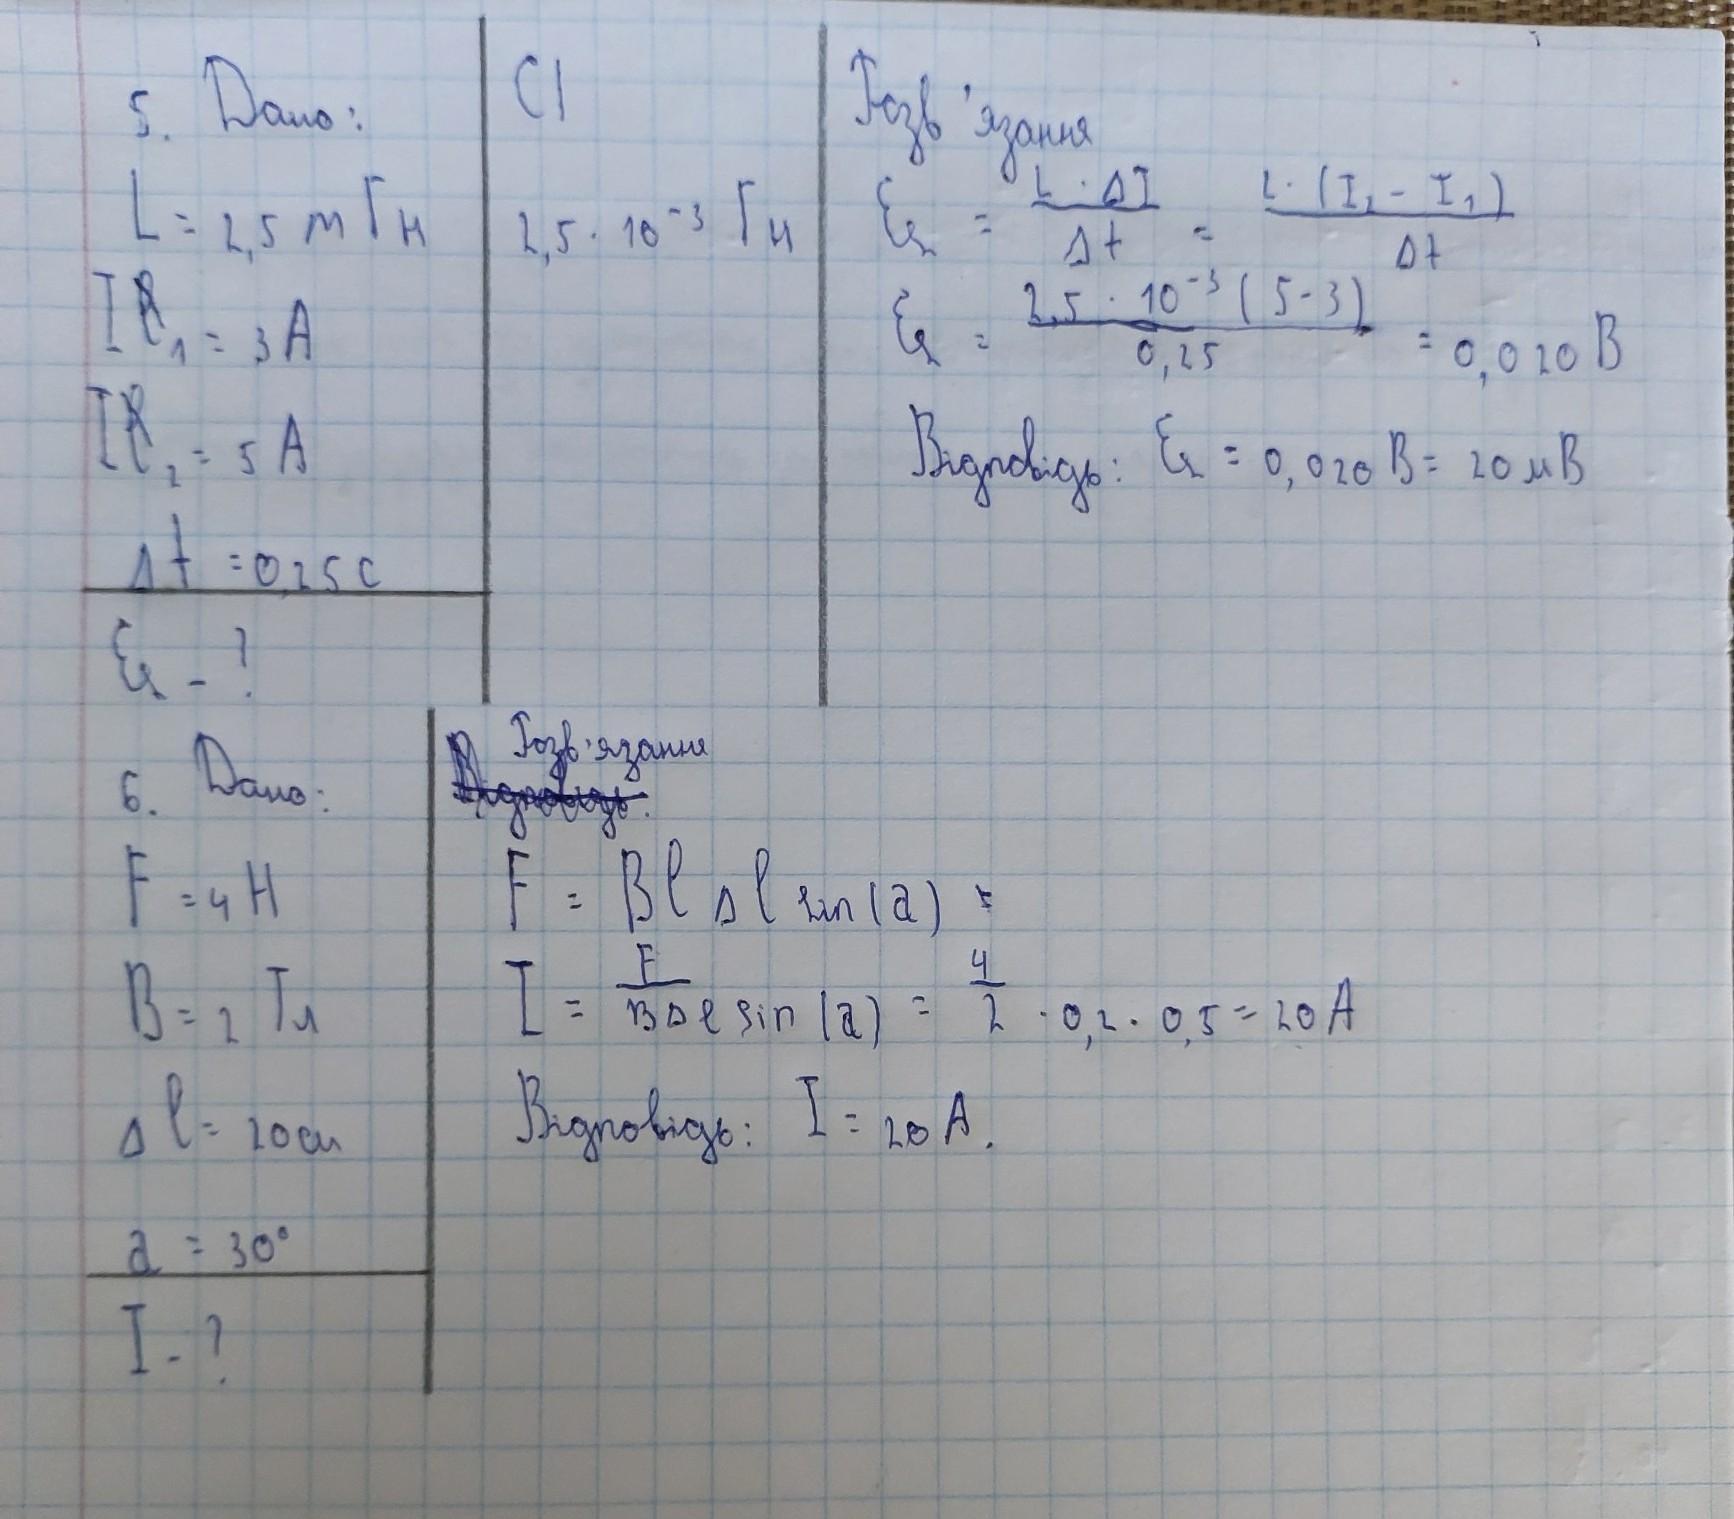 5. Дано:
L = 2,5 мГн
I₁ = 3 А
I₂ = 5 А
Δt = 0,25 с
Ɛᵢₛ - ?
СІ
2,5 · 10⁻³ Гн
Розв'язання
Ɛᵢₛ = L · ΔI / Δt = L · (I₂ - I₁) / Δt
Ɛᵢₛ = 2,5 · 10⁻³ (5-3) / 0,25 = 0,020 В
Відповідь: Ɛᵢₛ = 0,020 В = 20 мВ
6. Дано:
F = 4 Н
B = 2 Тл
Δl = 20 см
a = 30°
I - ?
Розв'язання
F = Bl Δl sin(a) =
I = F / BΔl sin(a) = 4/2 · 0,2 · 0,5 = 20 А
Відповідь: I = 20 А.